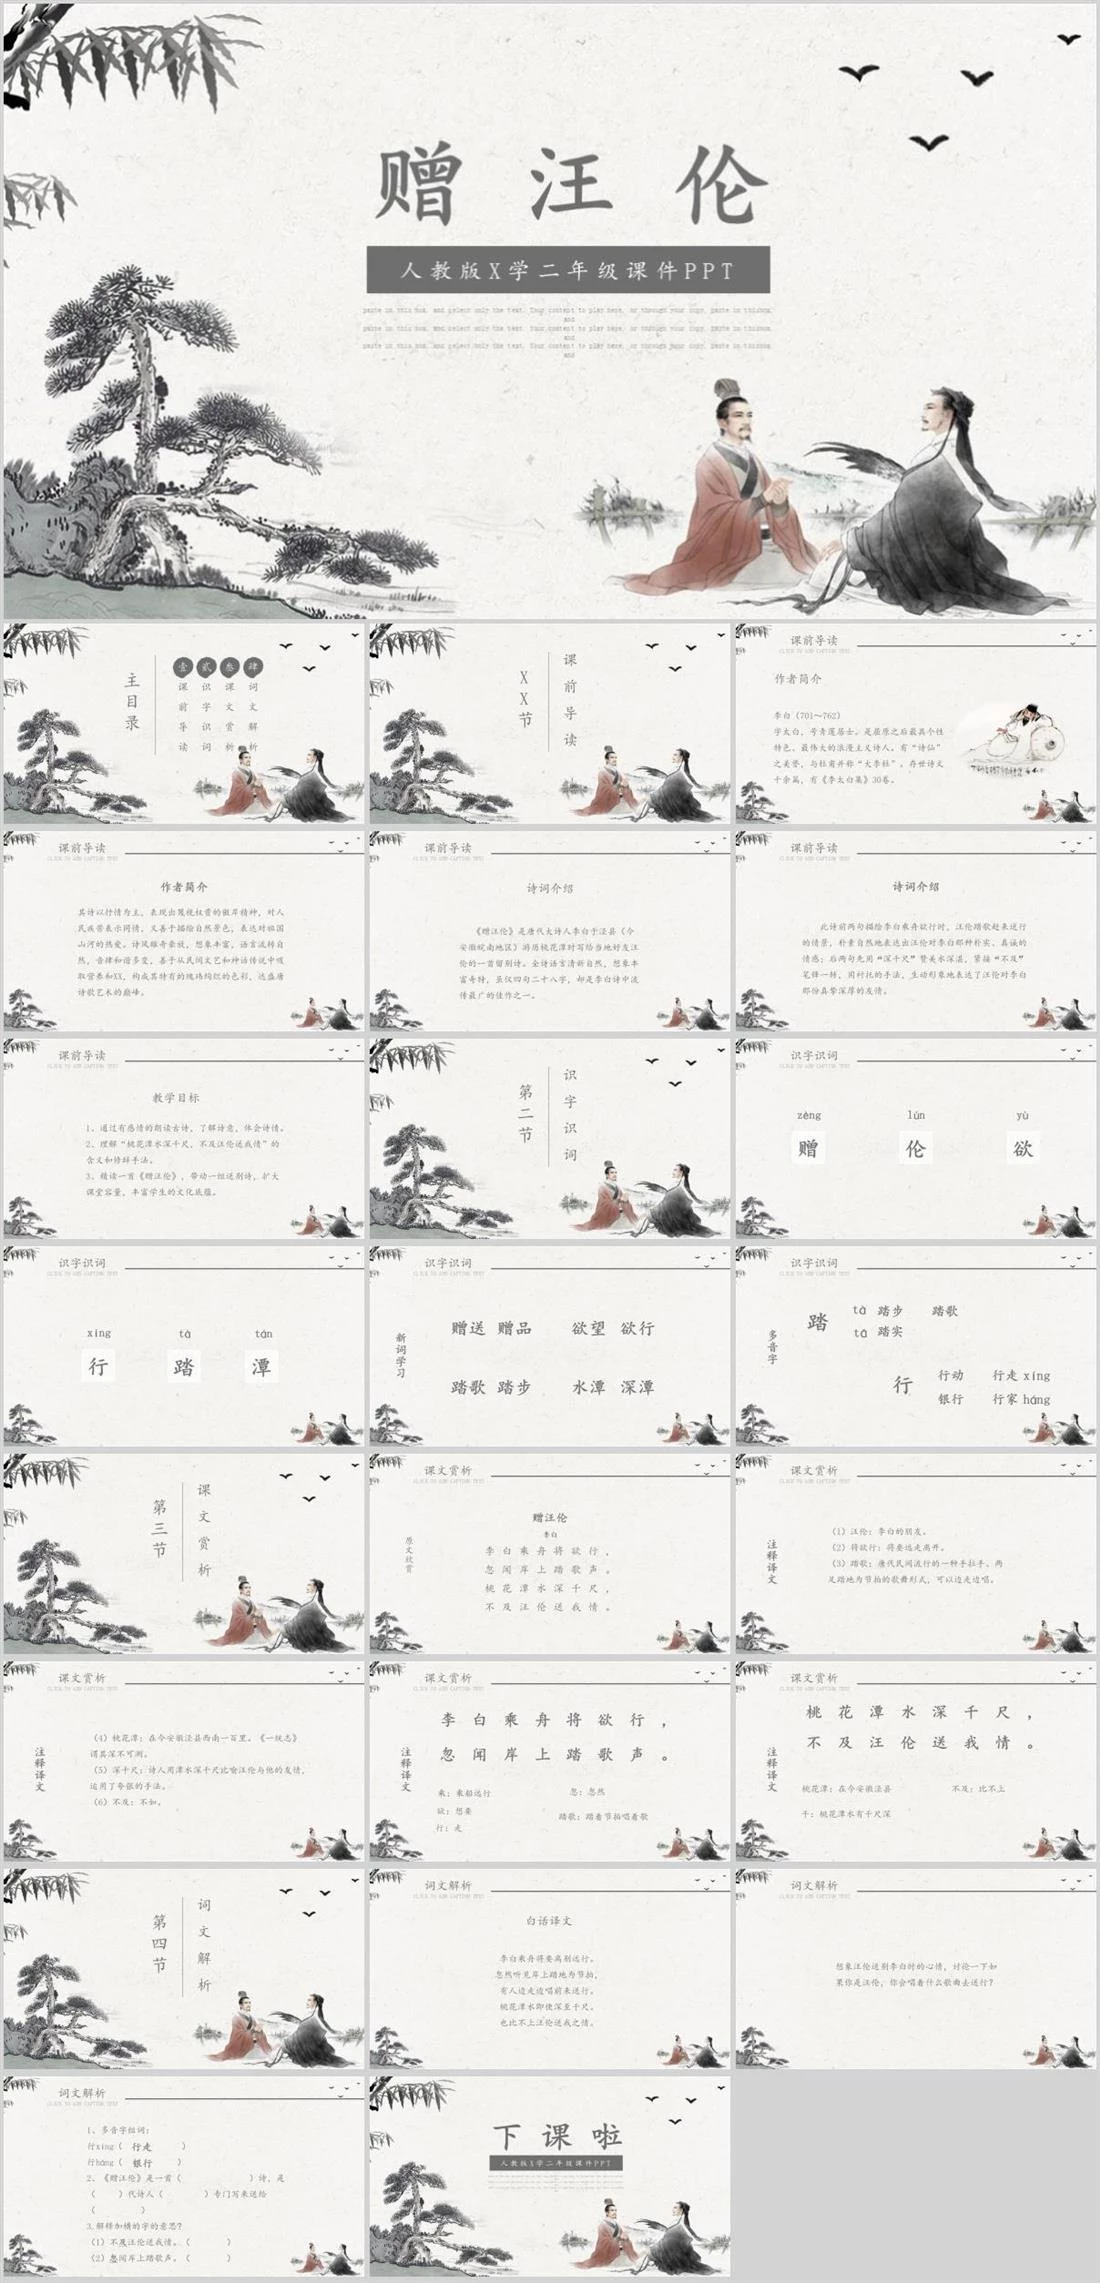 赠汪伦
人教版X学二年级课件PPT
paste in this box, and select only the text. Your content to play here, or through your copy, paste in thisbox,
and
paste in this box, and select only the text. Your content to play here, or through your copy, paste in thisbox,
and
paste in this box, and select only the text. Your content to play here, or through your copy, paste in thisbox,
and
主目录
壹 贰 叁 肆
课前导读
识字识词
课文赏析
词文解析
XX节
课前导读
课前导读
CLICK TO ADD CAPTION TEXT
作者简介
李白（701～762）
字太白，号青莲居士。是屈原之后最具个性
特色、最伟大的浪漫主义诗人。有“诗仙”
之美誉，与杜甫并称“大李杜”。存世诗文
千余篇，有《李太白集》30卷。
课前导读
CLICK TO ADD CAPTION TEXT
作者简介
其诗以抒情为主，表现出蔑视权贵的傲岸精神，对人
民疾苦表示同情，又善于描绘自然景色，表达对祖国
山河的热爱。诗风雄奇豪放，想象丰富，语言流转自
然，音律和谐多变，善于从民间文艺和神话传说中吸
取营养和XX，构成其特有的瑰玮绚烂的色彩，达盛唐
诗歌艺术的巅峰。
课前导读
CLICK TO ADD CAPTION TEXT
诗词介绍
《赠汪伦》是唐代大诗人李白于泾县（今
安徽皖南地区）游历桃花潭时写给当地好友汪
伦的一首留别诗。全诗语言清新自然，想象丰
富奇特，虽仅四句二十八字，却是李白诗中流
传最广的佳作之一。
课前导读
CLICK TO ADD CAPTION TEXT
诗词介绍
此诗前两句描绘李白乘舟欲行时，汪伦踏歌赶来送行
的情景，朴素自然地表达出汪伦对李白那种朴实、真诚的
情感；后两句先用“深千尺”赞美水深湛，紧接“不及”
笔锋一转，用衬托的手法，生动形象地表达了汪伦对李白
那份真挚深厚的友情。
课前导读
CLICK TO ADD CAPTION TEXT
教学目标
1、通过有感情的朗读古诗，了解诗意，体会诗情。
2、理解“桃花潭水深千尺，不及汪伦送我情”的
含义和修辞手法。
3、精读一首《赠汪伦》，带动一组送别诗，扩大
课堂容量，丰富学生的文化底蕴。
第二节
识字识词
识字识词
CLICK TO ADD CAPTION TEXT
zèng lún yù
赠 伦 欲
识字识词
CLICK TO ADD CAPTION TEXT
xíng tà tán
行 踏 潭
识字识词
CLICK TO ADD CAPTION TEXT
新词学习
赠送 赠品 欲望 欲行
踏歌 踏步 水潭 深潭
识字识词
CLICK TO ADD CAPTION TEXT
多音字
踏
tà 踏步 踏歌
tā 踏实
行
行动 行走 xíng
银行 行家 háng
第三节
课文赏析
课文赏析
CLICK TO ADD CAPTION TEXT
原文欣赏
赠汪伦
李白
李白乘舟将欲行，
忽闻岸上踏歌声。
桃花潭水深千尺，
不及汪伦送我情。
课文赏析
CLICK TO ADD CAPTION TEXT
注释译文
（1）汪伦：李白的朋友。
（2）将欲行：将要远走离开。
（3）踏歌：唐代民间流行的一种手拉手、两
足踏地为节拍的歌舞形式，可以边走边唱。
课文赏析
CLICK TO ADD CAPTION TEXT
注释译文
（4）桃花潭：在今安徽泾县西南一百里。《一统志》
谓其深不可测。
（5）深千尺：诗人用潭水深千尺比喻汪伦与他的友情，
运用了夸张的手法。
（6）不及：不如。
课文赏析
CLICK TO ADD CAPTION TEXT
注释译文
李白乘舟将欲行，
忽闻岸上踏歌声。
乘：乘船远行 忽：忽然
欲：想要 踏歌：踏着节拍唱着歌
行：走
课文赏析
CLICK TO ADD CAPTION TEXT
注释译文
桃花潭水深千尺，
不及汪伦送我情。
桃花潭：在今安徽泾县 不及：比不上
千：桃花潭水有千尺深
第四节
词文解析
词文解析
CLICK TO ADD CAPTION TEXT
白话译文
李白乘舟将要离别远行。
忽然听见岸上踏地为节拍，
有人边走边唱前来送行。
桃花潭水即使深至千尺。
也比不上汪伦送我之情。
词文解析
CLICK TO ADD CAPTION TEXT
想象汪伦送别李白时的心情，讨论一下如
果你是汪伦，你会唱着什么歌曲去送行？
词文解析
CLICK TO ADD CAPTION TEXT
1、多音字组词：
行xíng（ 行走 ）
行háng（ 银行 ）
2、《赠汪伦》是一首（ ）诗，是
（ ）代诗人（ ）专门写来送给
（ ）
3.解释加横的字的意思？
（1）不及汪伦送我情。（ ）
（2）忽闻岸上踏歌声。（ ）
下课啦
人教版X学二年级课件PPT